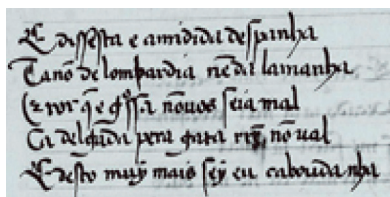 E dissesta e a midida despanha
Ca nõ de lombardia nẽ da lamanha
E por q̃ e g̃ssa nõ vos seia mal
Ca delgada pera gata rrẽ nõ ual
E desto muy mais sey eu ca boudanha